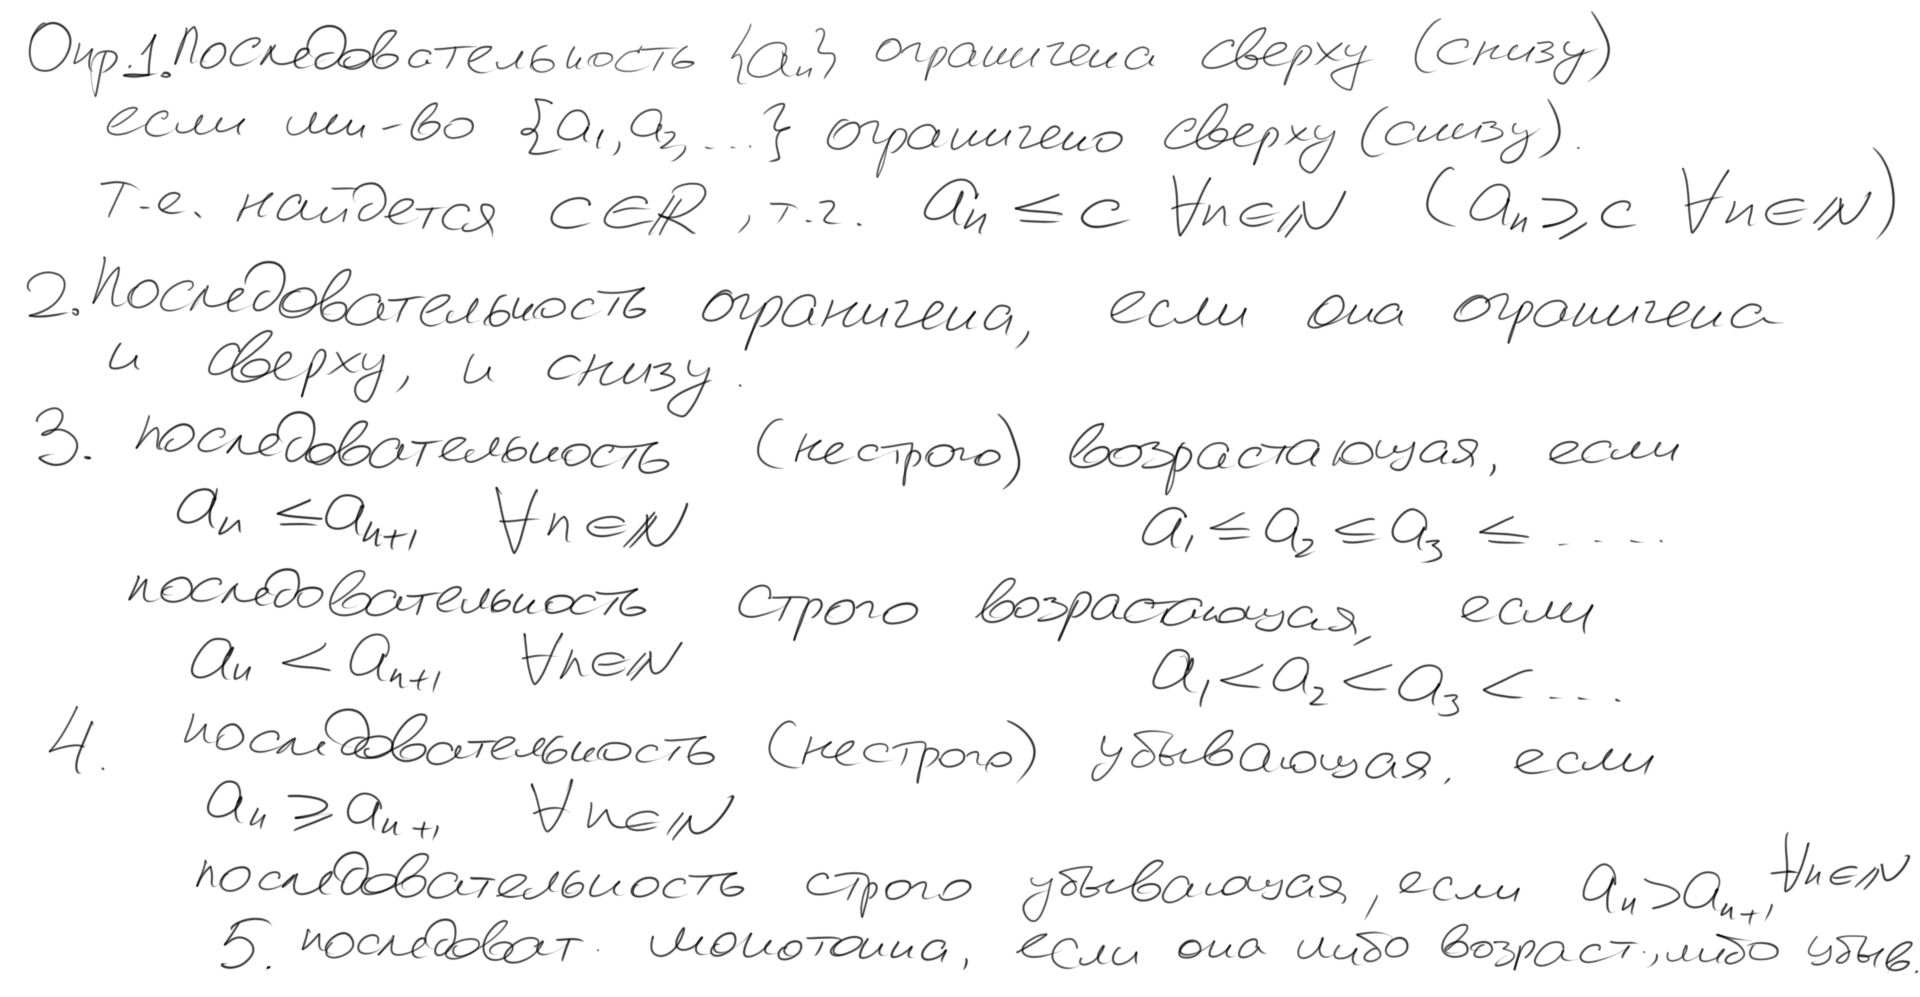 Опр.1. Последовательность {aₙ} ограничена сверху (снизу)
если мн-во {a₁, a₂, ...} ограничено сверху (снизу).
т.е. найдется c∈ℝ, т.ч. aₙ ≤ c ∀n∈ℕ (aₙ ⩾ c ∀n∈ℕ)
2. Последовательность ограничена, если она ограничена
и сверху, и снизу.
3. последовательность (нестрого) возрастающая, если
aₙ ≤ aₙ₊₁ ∀n∈ℕ a₁ ≤ a₂ ≤ a₃ ≤ .....
последовательность строго возрастающая, если
aₙ < aₙ₊₁ ∀n∈ℕ a₁ < a₂ < a₃ < ....
4. последовательность (нестрого) убывающая, если
aₙ ⩾ aₙ₊₁ ∀n∈ℕ
последовательность строго убывающая, если aₙ > aₙ₊₁, ∀n∈ℕ
5. последоват. монотонна, если она либо возраст., либо убыв.